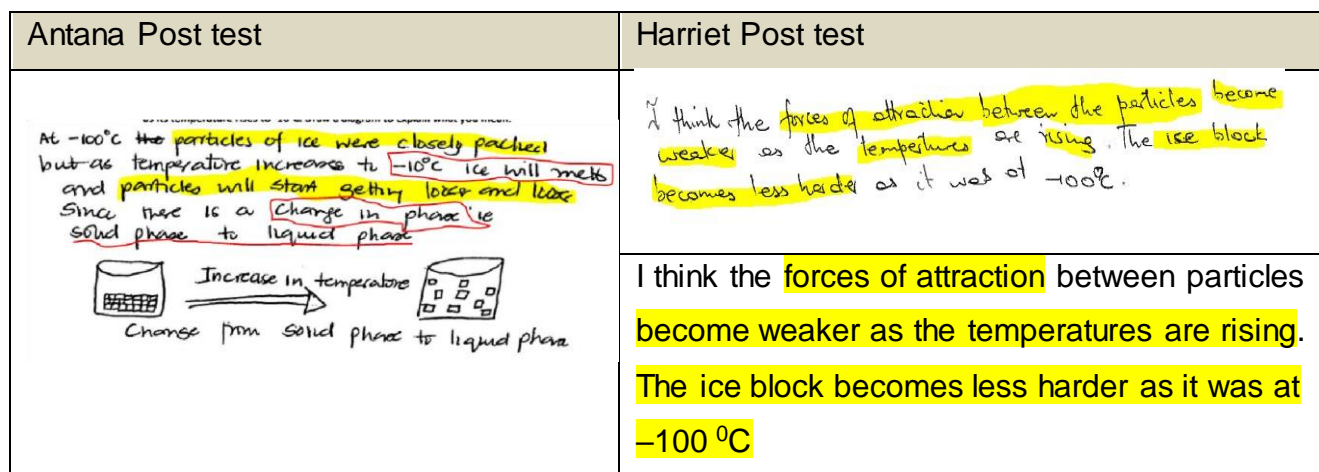 Antana Post test
Harriet Post test
as its temperature rises to -10 draw a diagram to explain what you mean.
At -100°C the particles of ice were closely packed
but as temperature increases to -10°C ice will melt
and particles will start getting looser and loose
Since there is a change in phase ie
solid phase to liquid phase
Increase in temperature
Change from solid phase to liquid phase
I think the forces of attraction between the particles become
weaker as the tempertures are rising. The ice block
becomes less harder as it was at -100°C.
I think the forces of attraction between particles
become weaker as the temperatures are rising.
The ice block becomes less harder as it was at
–100 ⁰C